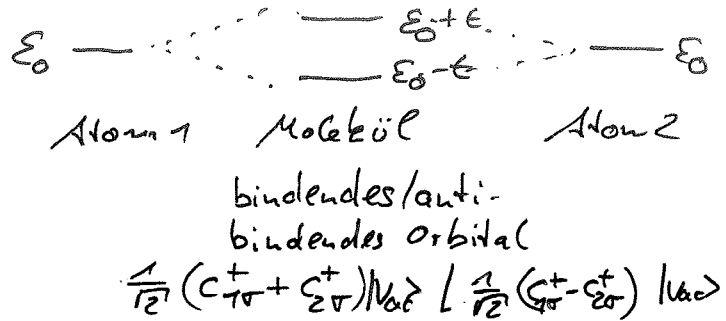 ε₀ + t
ε₀ ε₀ - t ε₀
Atom 1 Molekül Atom 2
bindendes/anti-
bindendes Orbital
1/√2 (c⁺₁σ + c⁺₂σ)|Vac> / 1/√2 (c⁺₁σ - c⁺₂σ) |Vac>